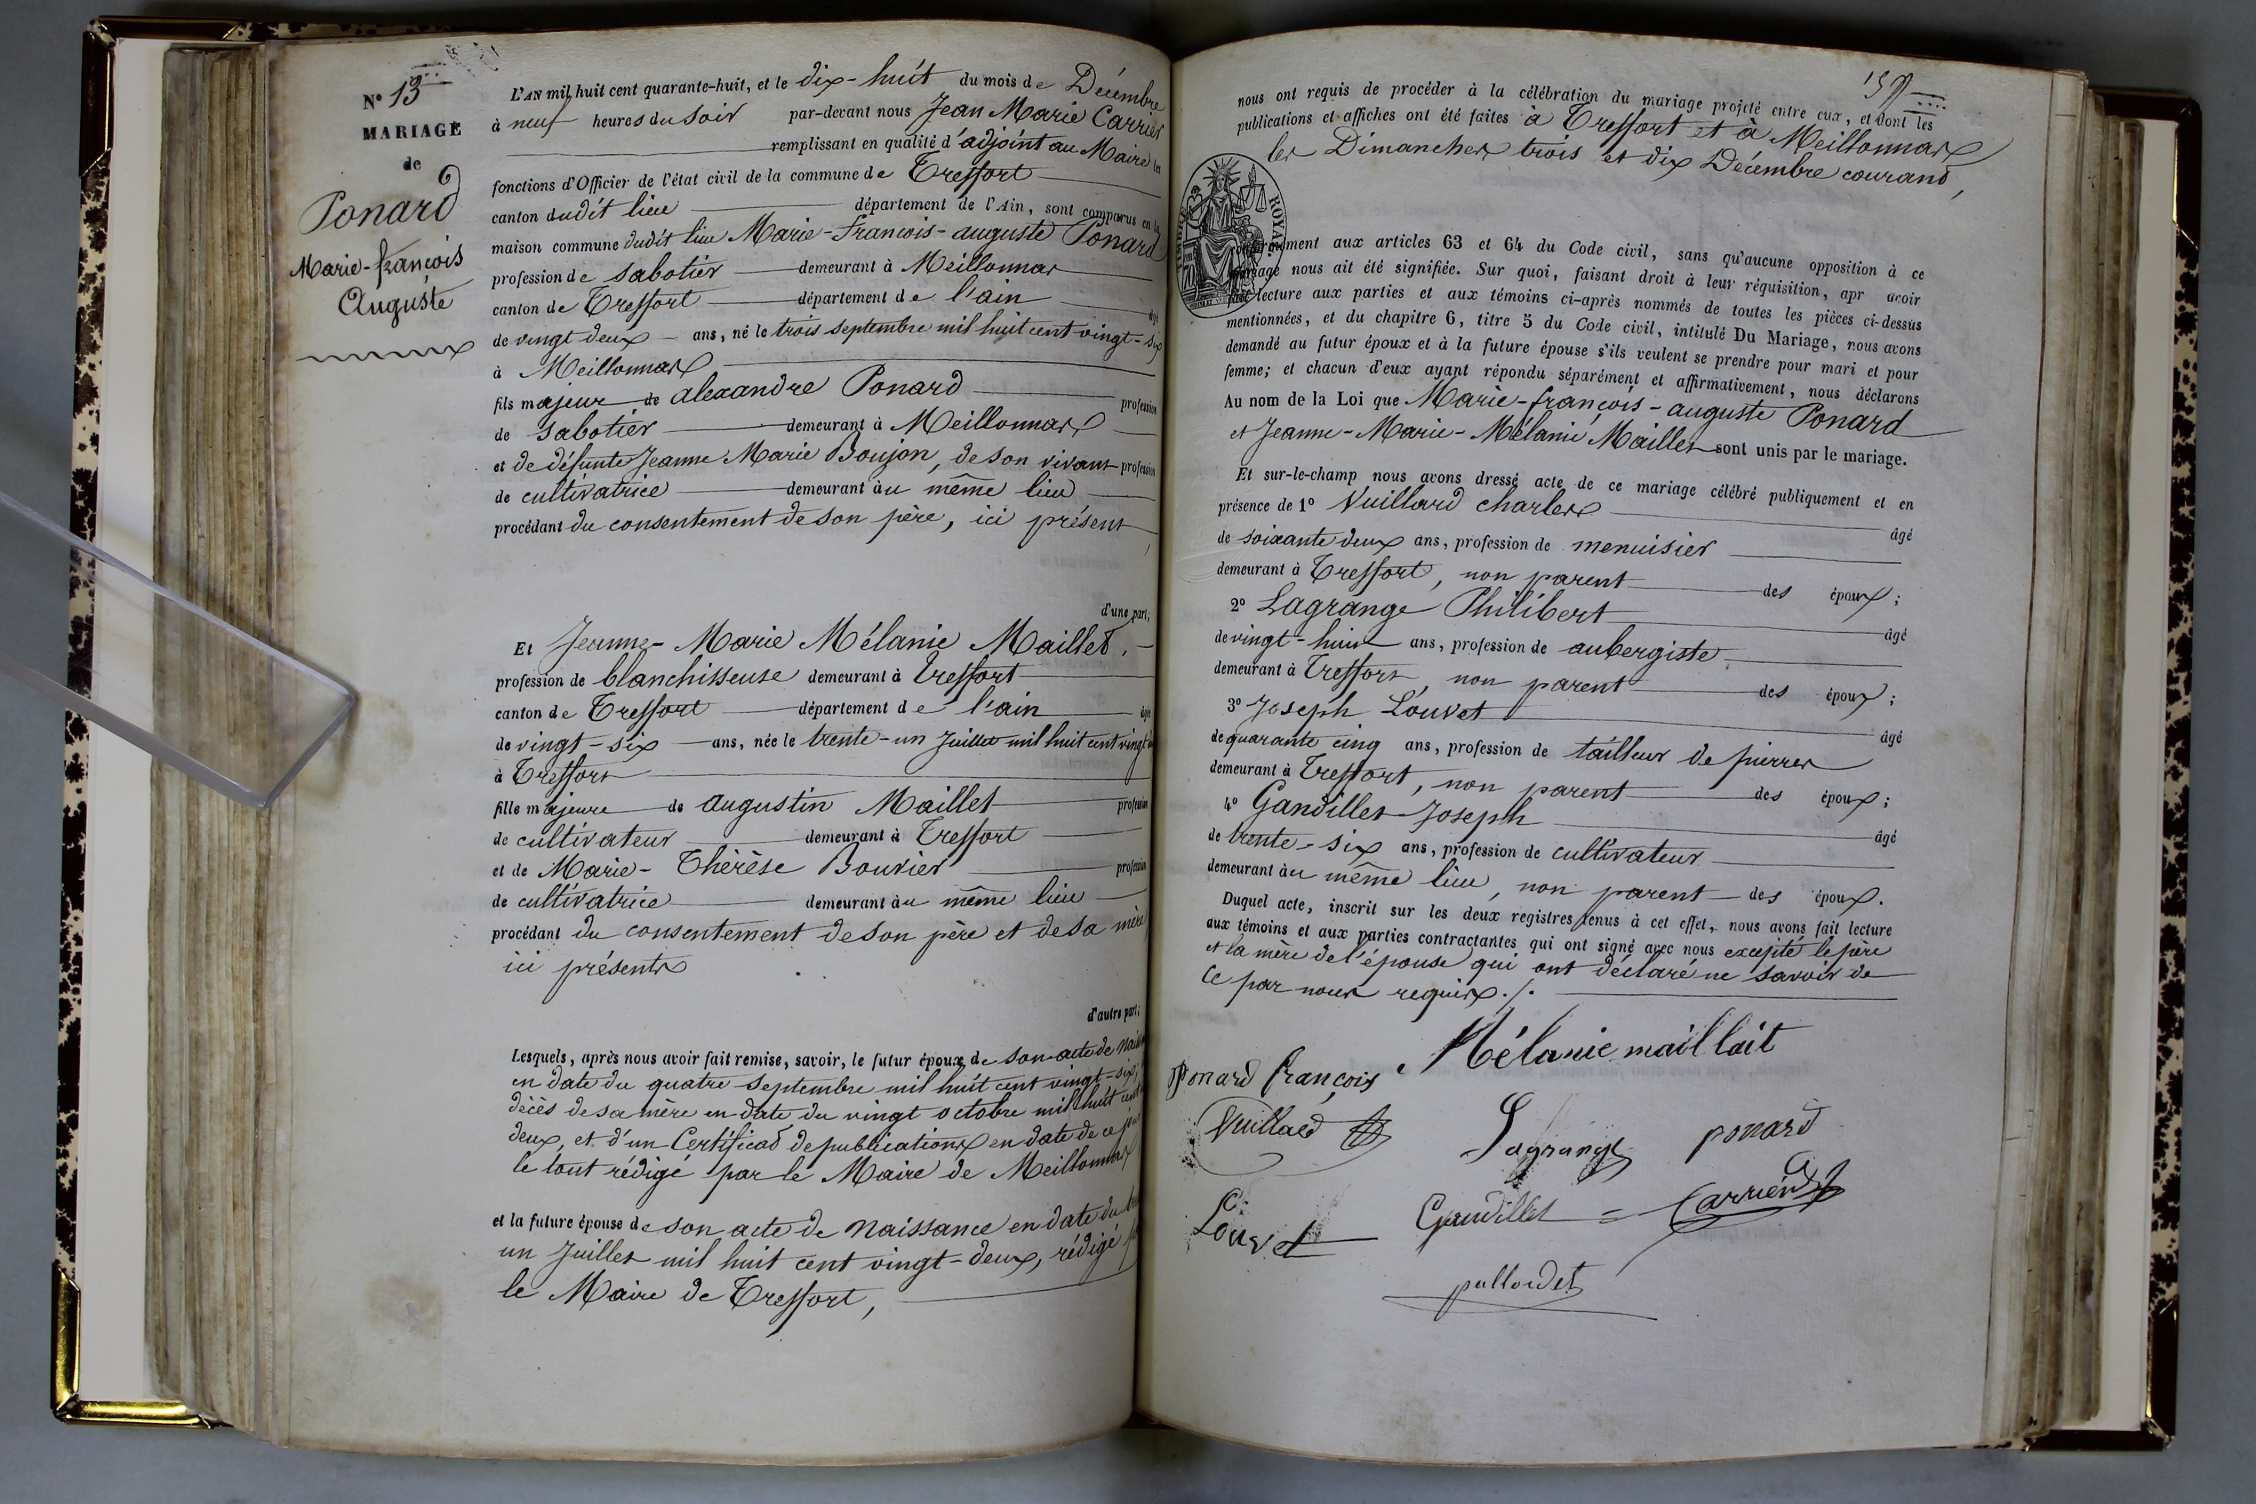 N° 13
MARIAGE
de
Ponard
Marie-françois
Auguste
L'AN mil huit cent quarante-huit, et le dix-huit du mois de Décembre
à neuf heures du soir par-devant nous Jean Marie Carrier
remplissant en qualité d'adjoint au Maire les
fonctions d'Officier de l'état civil de la commune de Treffort
canton dudit lieu département de l'Ain, sont comparus en la
maison commune dudit lieu Marie-françois-auguste Ponard
profession de sabotier demeurant à Meillonnas
canton de Treffort département de l'ain âgé
de vingt deux ans, né le trois septembre mil huit cent vingt-six
à Meillonnas
fils majeur de alexandre Ponard profession
de sabotier demeurant à Meillonnas
et de défunte Jeanne Marie Boujon, de son vivant profession
de cultivatrice demeurant au même lieu
procédant du consentement de son père, ici présent,
d'une part;
Et Jeanne-Marie Mélanie Maillet.
profession de blanchisseuse demeurant à Treffort
canton de Treffort département de l'ain âgée
de vingt-six ans, née le trente-un Juillet mil huit cent vingt
à Treffort
fille majeure de augustin Maillet profession
de cultivateur demeurant à Treffort
et de Marie-Thérèse Bouvier profession
de cultivatrice demeurant au même lieu
procédant du consentement de son père et de sa mère
ici présents
d'autre part;
Lesquels, après nous avoir fait remise, savoir, le futur époux de son acte de
en date du quatre septembre mil huit cent vingt-six;
décès de sa mère en date du vingt octobre mil huit cent
deux, et d'un Certificat de publications en date de ce jour
le tout rédigé par le Maire de Meillonnas
et la future épouse de son acte de naissance en date du
un Juillet mil huit cent vingt-deux, rédigé
le Maire de Treffort,
nous ont requis de procéder à la célébration du mariage projeté entre eux, et dont les
publications et affiches ont été faites à Treffort et à Meillonnas
les Dimanches trois et dix Décembre courant,
ROYAL
conformément aux articles 63 et 64 du Code civil, sans qu'aucune opposition à ce
mariage nous ait été signifiée. Sur quoi, faisant droit à leur réquisition, apr avoir
fait lecture aux parties et aux témoins ci-après nommés de toutes les pièces ci-dessus
mentionnées, et du chapitre 6, titre 5 du Code civil, intitulé Du Mariage, nous avons
demandé au futur époux et à la future épouse s'ils veulent se prendre pour mari et pour
femme; et chacun d'eux ayant répondu séparément et affirmativement, nous déclarons
Au nom de la Loi que Marie-françois-auguste Ponard
et Jeanne-Marie-Mélanie Maillet sont unis par le mariage.
Et sur-le-champ nous avons dressé acte de ce mariage célébré publiquement et en
présence de 1° Vuillard charles âgé
de soixante deux ans, profession de menuisier
demeurant à Treffort, non parent des époux;
2° Lagrange Philibert âgé
de vingt-huit ans, profession de aubergiste
demeurant à Treffort, non parent des époux;
3° Joseph Louvet âgé
de quarante cinq ans, profession de tailleur de pierres
demeurant à Treffort, non parent des époux;
4° Gandillet Joseph âgé
de trente-six ans, profession de cultivateur
demeurant au même lieu, non parent des époux.
Duquel acte, inscrit sur les deux registres tenus à cet effet, nous avons fait lecture
aux témoins et aux parties contractantes qui ont signé avec nous excepté le père
et la mère de l'épouse qui ont déclaré ne savoir de
ce par nous requis./.
Mélanie maillait
Ponard françois
Vuillard
Lagrange
ponard
Louvet
Gandillet
Carrier